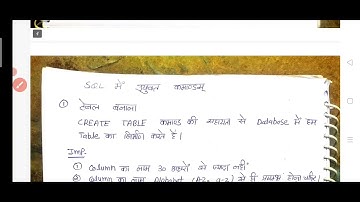 SQL में प्रयुक्त कमाण्डस्
① टेबल बनाना
CREATE TABLE कमाण्ड की सहायता से Database में हम
Table का निर्माण करते हैं।
Imp.
① Column का नाम 30 अक्षरों से ज्यादा नहीं
② Column का नाम Alphabet (A-Z, a-z) से ही प्रारम्भ होना चाहिए।